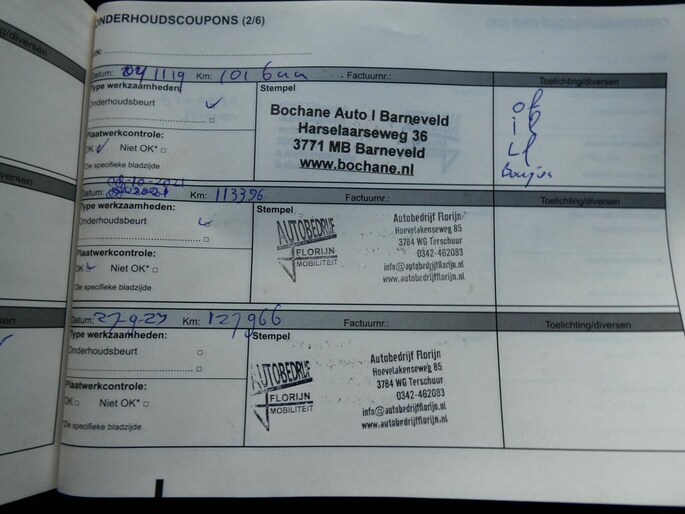 ONDERHOUDSCOUPONS (2/6)
ng/diversen
Datum: 04/11/19 Km: Factuurnr.: Toelichting/diversen
Type werkzaamheden: Stempel
Onderhoudsbeurt
Bochane Auto I Barneveld
Harselaarseweg 36
3771 MB Barneveld
www.bochane.nl
Plaatwerkcontrole:
OK Niet OK*
Zie specifieke bladzijde
of
Bougies
Datum: 08-10-2021 Km: 113396 Factuurnr.: Toelichting/diversen
Type werkzaamheden: Stempel
Onderhoudsbeurt
AUTOBEDRIJF
FLORIJN
MOBILITEIT
Autobedrijf Florijn
Hoevelakenseweg 85
3784 WG Terschuur
0342-462083
info@autobedrijfflorijn.nl
www.autobedrijfflorijn.nl
Plaatwerkcontrole:
OK Niet OK*
Zie specifieke bladzijde
Datum: 27-9-23 Km: 127966 Factuurnr.: Toelichting/diversen
Type werkzaamheden: Stempel
Onderhoudsbeurt
AUTOBEDRIJF
FLORIJN
MOBILITEIT
Autobedrijf Florijn
Hoevelakenseweg 85
3784 WG Terschuur
0342-462083
info@autobedrijfflorijn.nl
www.autobedrijfflorijn.nl
Plaatwerkcontrole:
OK Niet OK*
Zie specifieke bladzijde